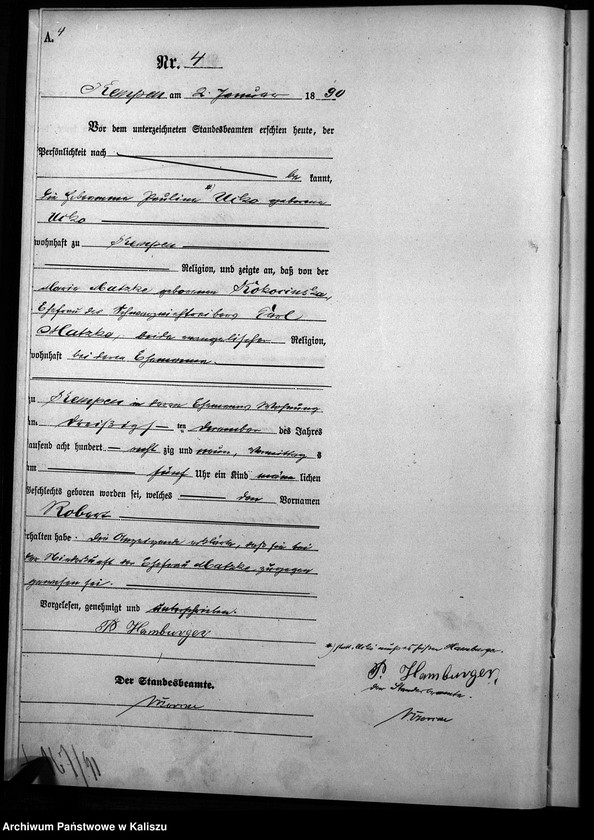 A. 4
Nr. 4
Kempen am 2. Januar 1890
Vor dem unterzeichneten Standesbeamten erschien heute, der
Persönlichkeit nach
be kannt,
die Hebamme Pauline Ucko geborene
Ucko
wohnhaft zu Kempen
Religion, und zeigte an, daß von der
Marie Matzke geborenen
Ehefrau des Carl
Matzke, beide evangelischer Religion,
wohnhaft bei deren Ehemanne.
zu Kempen in deren Ehemanns Wohnung
am dreißigsten December des Jahres
tausend acht hundert acht zig und neun, Vormittags
um fünf Uhr ein Kind männlichen
Geschlechts geboren worden sei, welches den Vornamen
Robert
erhalten habe. Die Anzeigende erklärte, daß sie bei
der Niederkunft der Ehefrau Matzke zugegen
gewesen sei.
Vorgelesen, genehmigt und unterschrieben.
P. Hamburger
Der Standesbeamte.
statt Ucko muß es heißen Hamburger.
P. Hamburger.
der Standesbeamte.
Archiwum Państwowe w Kaliszu